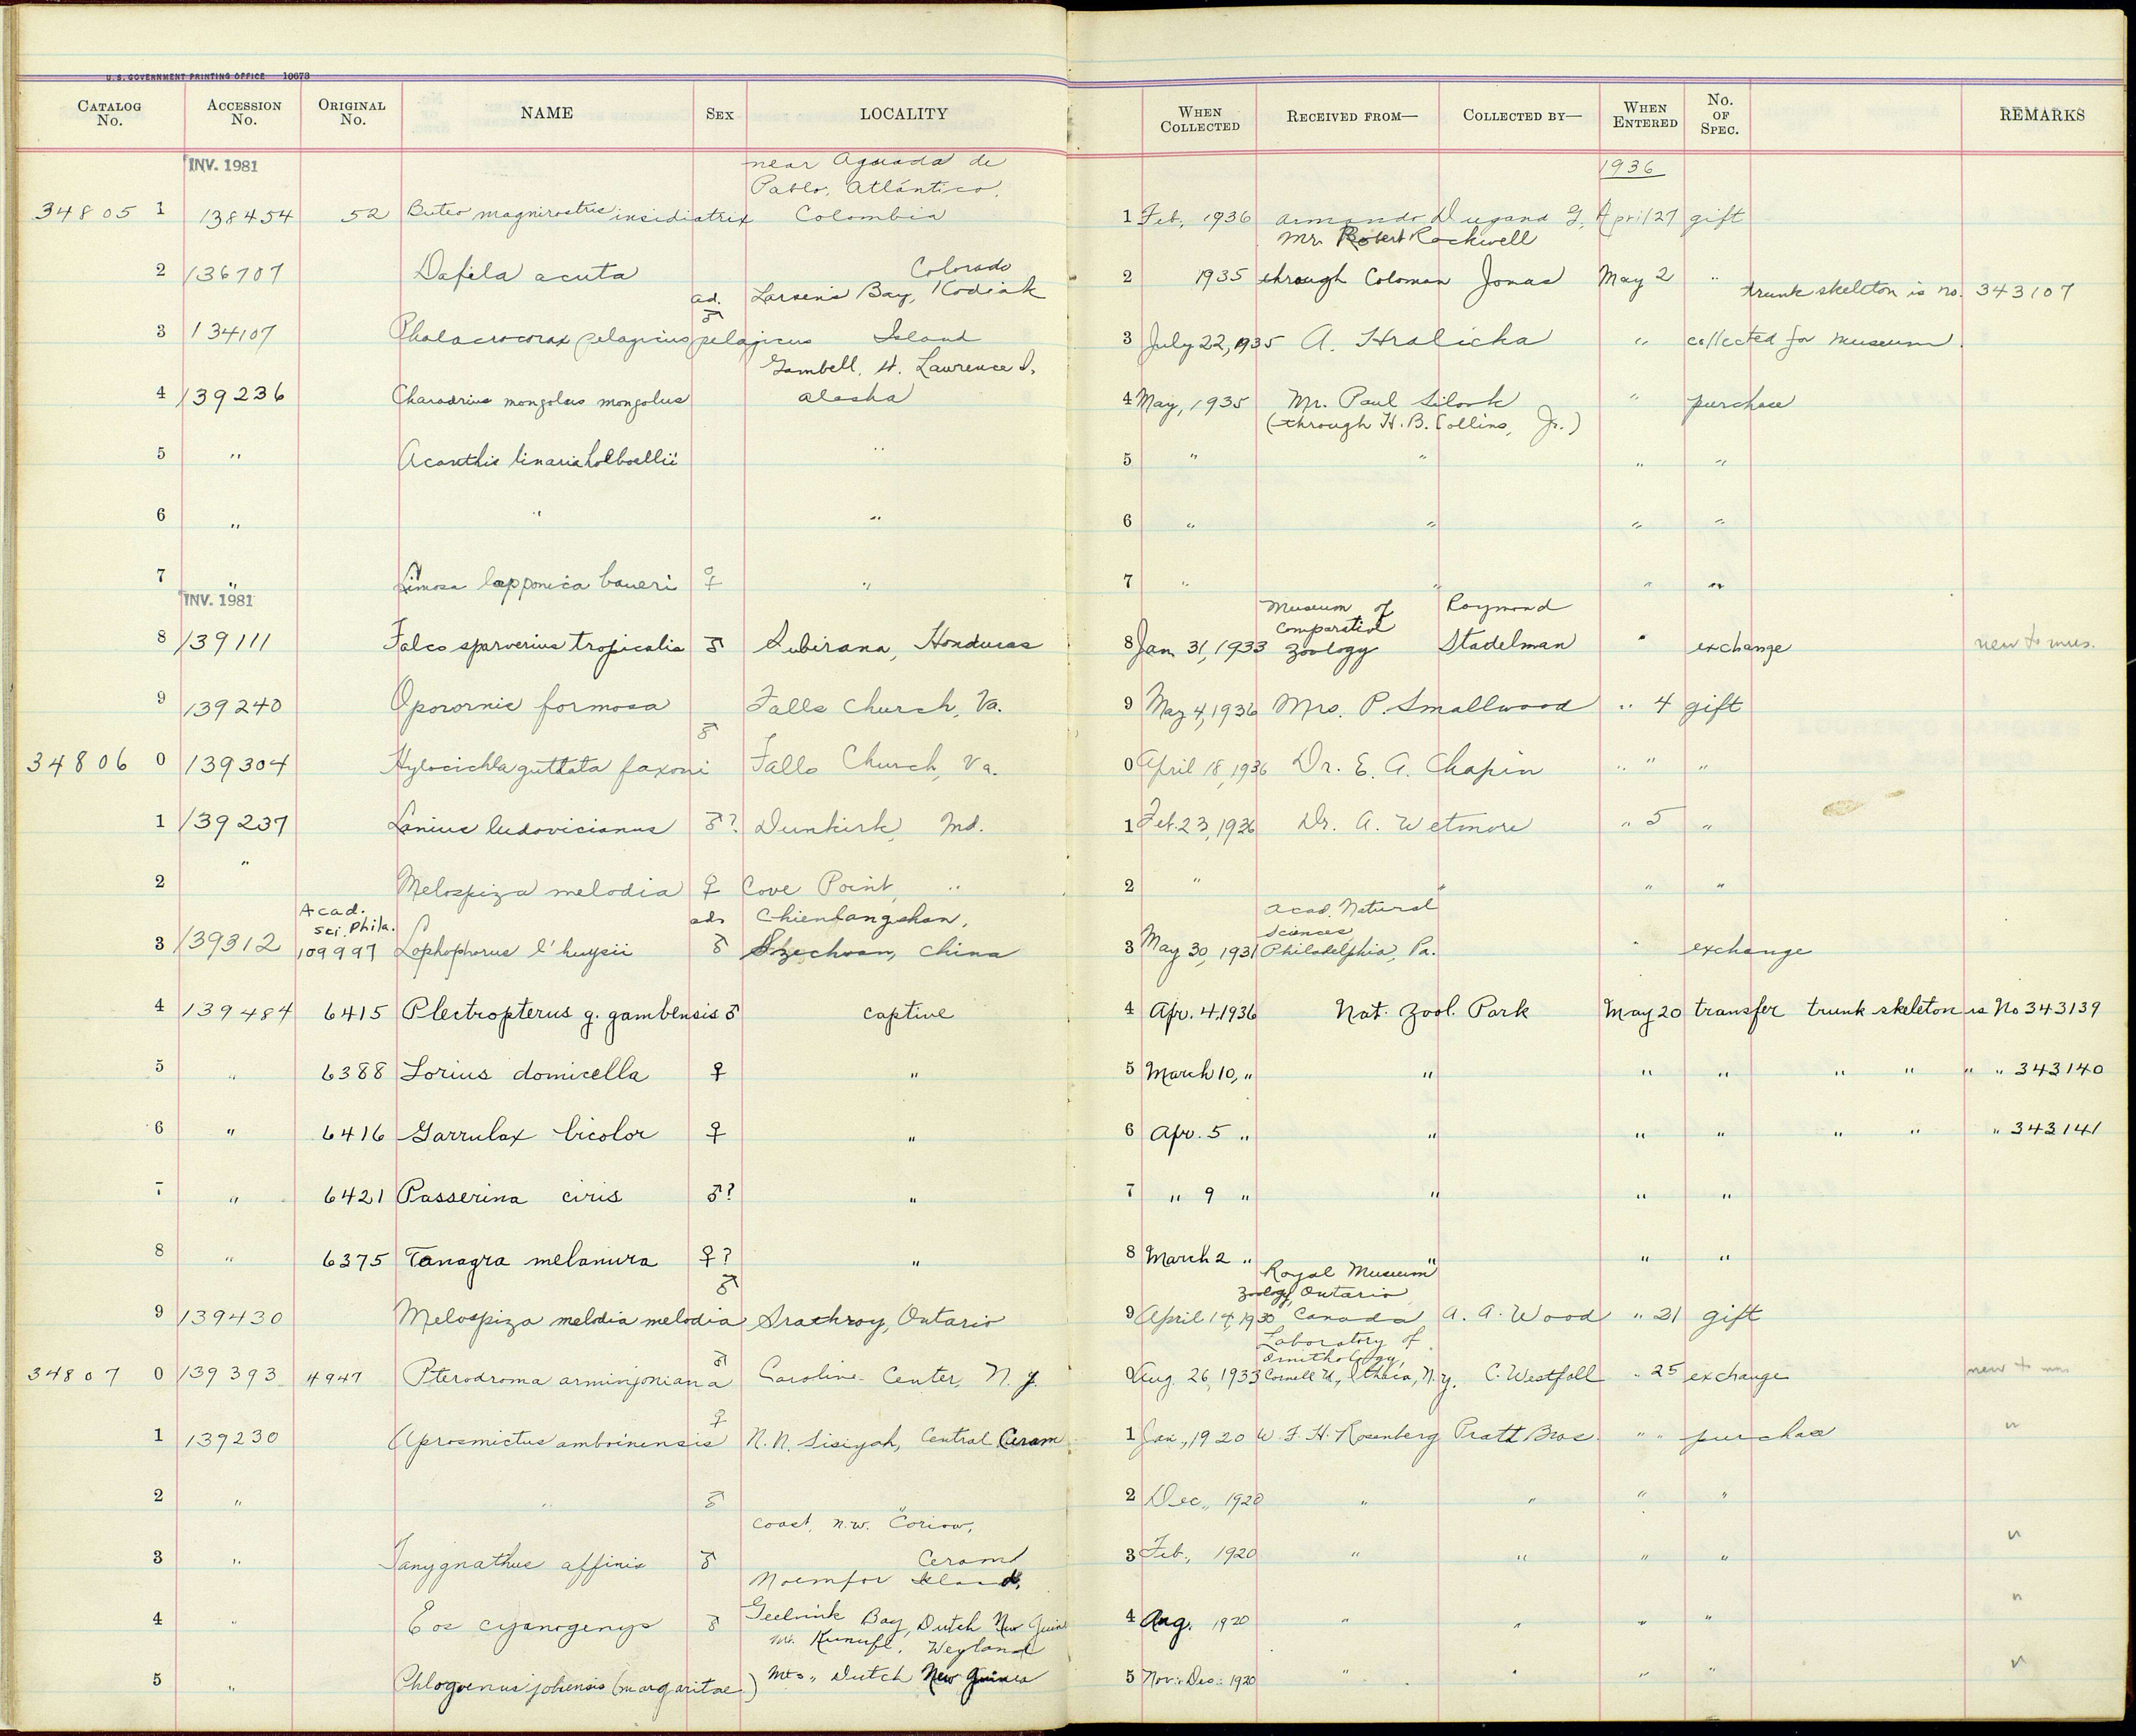 U. S. GOVERNMENT PRINTING OFFICE 10673
CATALOG No. ACCESSION No. ORIGINAL No. NAME SEX LOCALITY WHEN COLLECTED RECEIVED FROM— COLLECTED BY— WHEN ENTERED No. OF SPEC. REMARKS
INV. 1981 near Aguada de 1936
Pablo, Atlántico,
34805 1 138454 52 Buteo magnirostris insidiatrix Colombia 1 Feb., 1936 Armando Dugand G. April 27 gift
Mr. Robert Rockwell
2 136707 Dafila acuta Colorado 2 1935 through Coloman Jonas May 2 " trunk skeleton is no. 343107
ad. Larsen's Bay, Kodiak
3 134107 Phalacrocorax pelagicus pelagicus ♂ Island 3 July 22, 1935 A. Hrdlicka " collected for museum
Gambell, St. Lawrence I.
4 139236 Charadrius mongolus mongolus Alaska 4 May, 1935 Mr. Paul Silook " purchase
(through H. B. Collins, Jr.)
5 " Acanthis linaria holboellii " 5 " " " "
6 " " " 6 " " " "
7 " Limosa lapponica baueri ♀ " 7 " " " "
INV. 1981 Museum of Raymond
Comparative
8 139111 Falco sparverius tropicalis ♂ Subirana, Honduras 8 Jan. 31, 1933 Zoology Stadelman " exchange new to mus.
9 139240 Oporornis formosa Falls Church, Va. 9 May 4, 1936 Mrs. P. Smallwood " 4 gift
34806 0 139304 Hylocichla guttata faxoni ♂ Falls Church, Va. 0 April 18, 1936 Dr. E. A. Chapin " " "
1 139237 Lanius ludovicianus ♂? Dunkirk, Md. 1 Feb. 23, 1936 Dr. A. Wetmore " 5 "
2 " Melospiza melodia ♀ Cove Point, " 2 " " " "
Acad. ad. Chienlangshan, Acad. Natural
Sci. Phila. Sciences
3 139312 109997 Lophophorus l'huysii ♂ Szechwan, China 3 May 30, 1931 Philadelphia, Pa. " exchange
4 139484 6415 Plectropterus g. gambensis ♂ captive 4 Apr. 4, 1936 Nat. Zool. Park May 20 transfer trunk skeleton is No 343139
5 " 6388 Lorius domicella ♀ " 5 March 10, " " " " " " " " 343140
6 " 6416 Garrulax bicolor ♀ " 6 Apr. 5 " " " " " " " 343141
7 " 6421 Passerina ciris ♂? " 7 " 9 " " " "
8 " 6375 Tanagra melanura ♀? " 8 March 2 " " " "
Royal Museum
Zoology, Ontario
9 139430 Melospiza melodia melodia ♂ Srathroy, Ontario 9 April 14, 1930 Canada A. A. Wood " 21 gift
Laboratory of
Ornithology,
34807 0 139393 4947 Pterodroma arminjoniana ♂ Caroline Center, N. Y. 0 Aug. 26, 1933 Cornell U., Ithaca, N.Y. C. Westfall " 25 exchange new to mus.
1 139230 Aprosmictus amboinensis ♀ N. N. Sisiyah, Central Ceram 1 Jan., 1920 W. F. H. Rosenberg Pratt Bros. " " purchase "
2 " " ♂ " 2 Dec., 1920 " " " "
Coast, N.W. Coriow,
3 " Tanygnathus affinis ♂ Ceram 3 Feb., 1920 " " " " "
Noemfor Island,
4 " Eos cyanogenys ♂ Geelvink Bay, Dutch New Guin 4 Aug. 1920 " " " " "
Mt. Kunupi, Weyland
5 " Chlogoenus jobiensis (margaritae) Mts., Dutch New Guinea 5 Nov.-Dec. 1920 " " " " "